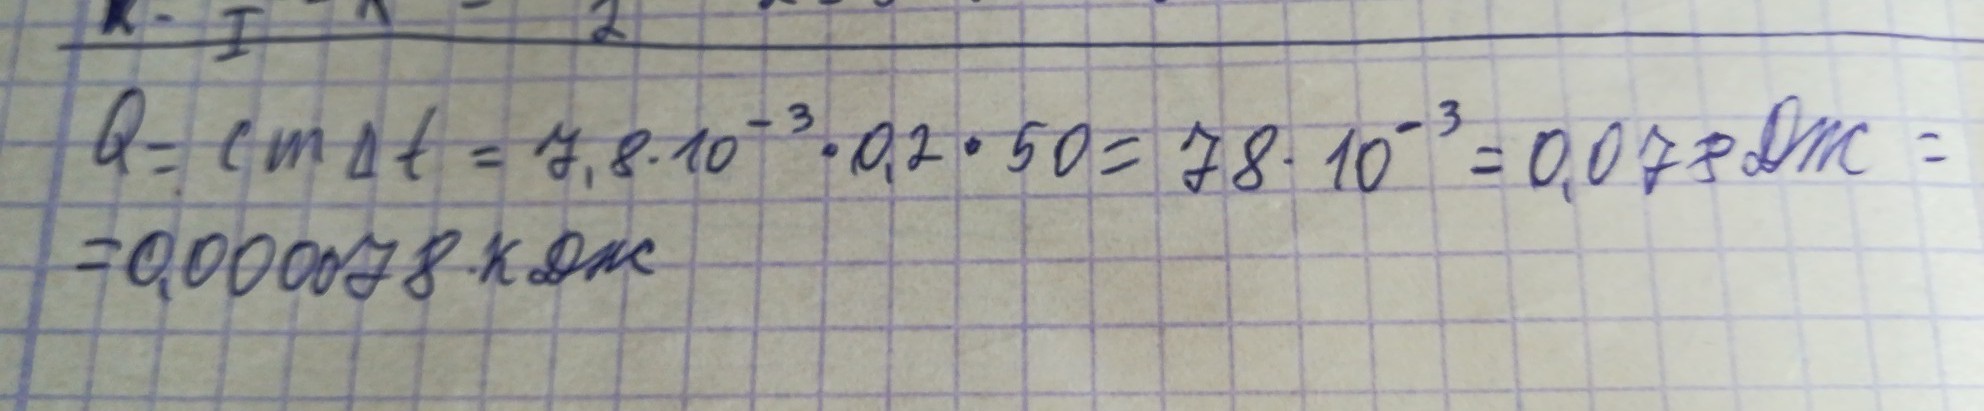 Q = cmΔt = 7,8·10⁻³·0,2·50 = 78·10⁻³ = 0,078 Дж =
= 0,000078 кДж